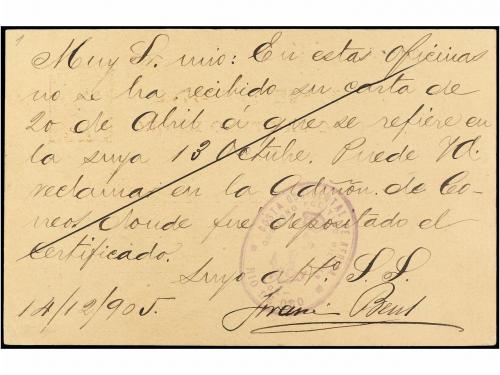 Muy S. mio: En estas oficinas
no se ha recibido su carta de
20 de Abril á que se refiere en
la suya 13 Octubre. Puede Vd.
reclamar en la Admon. de Co-
rreos donde fué depositado el
certificado.
Suyo att.º S. S.
14/12/905.